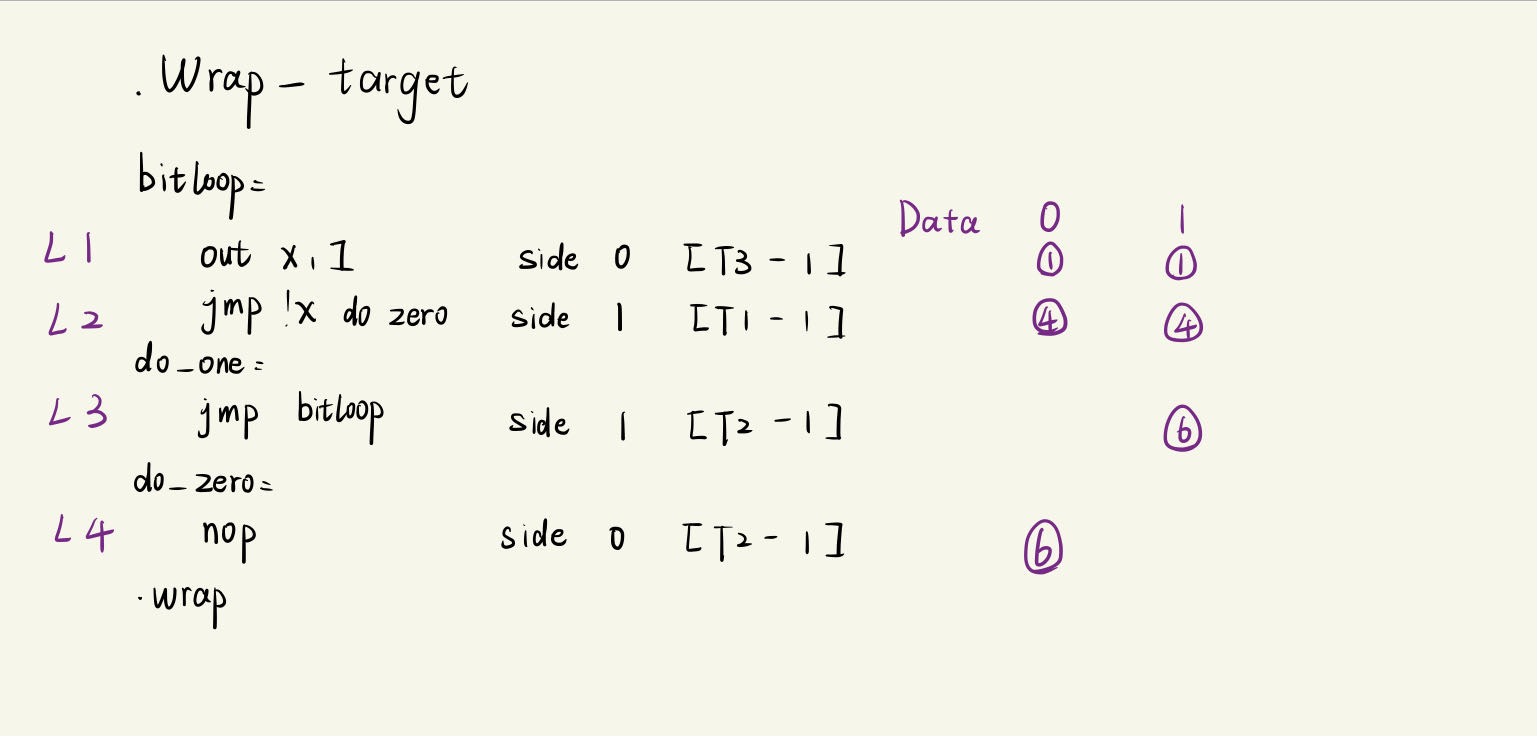 . Wrap - target
bitloop=
Data 0 1
L1 out x, 1 side 0 [T3 - 1] ① ①
L2 jmp !x do zero side 1 [T1 - 1] ④ ④
do_one=
L3 jmp bitloop side 1 [T2 - 1] ⑥
do_zero=
L4 nop side 0 [T2 - 1] ⑥
.wrap